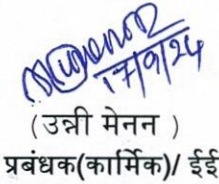 17/9/24
(उन्नी मेनन )
प्रबंधक(कार्मिक)/ ईई